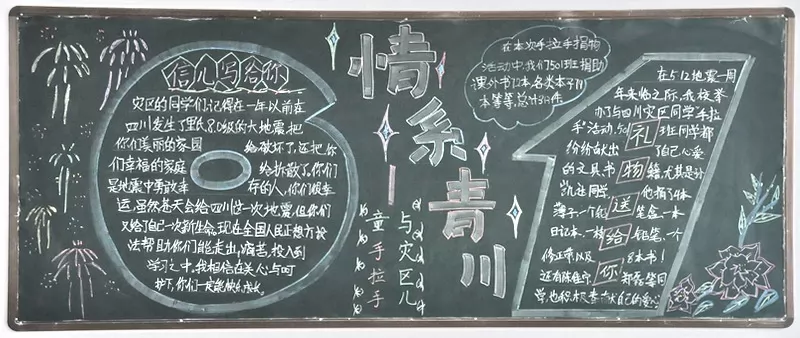 信儿写给你
灾区的同学们:记得在一年以前在
四川发生了里氏8.0级的大地震,把
你们美丽的家园给破坏了,还把你
们幸福的家庭给拆散了,你们
是地震中勇敢幸存的人,你们很幸
运,虽然苍天会给四川这一次地震,但你们
又给了自己一次新生命。现在全国人民正想方设
法帮助你们能走出痛苦,投入到
学习之中。我相信在关心与呵
护下,你们一定能快乐成长。
情系青川
与灾区儿
童手拉手
在本次手拉手捐物
活动中,我们501班捐助
课外书12本,各类本子
本等等,总计313件
在5.12地震一周
年来临之际,我校举
办了与四川灾区同学手拉
手活动,501班同学都
纷纷献出了自己心爱
的文具书籍,尤其是
凯在同学他捐了4本
薄子一个包笔盒一本
日记本、一枝铅笔、一个
修正带以及8本书!
还有陈郑磊等同
学也积极奉献自己的爱心
礼物送给你